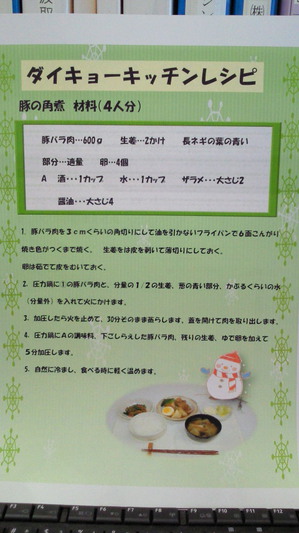 ダイキョーキッチンレシピ
豚の角煮 材料(4人分)
豚バラ肉・・・600g 生姜・・・2かけ 長ネギの葉の青い
部分・・・適量 卵・・・4個
A 酒・・・1カップ 水・・・1カップ ザラメ・・・大さじ2
醤油・・・大さじ4
1. 豚バラ肉を3cmくらいの角切りにして油を引かないフライパンで6面こんがり
焼き色がつくまで焼く。 生姜は皮を剥いて薄切りにしておく。
卵は茹でて皮をむいておく。
2. 圧力鍋に1の豚バラ肉と、分量の1/2の生姜、葱の青い部分、かぶるくらいの水
(分量外)を入れて火にかけます。
3. 加圧したら火を止めて、30分そのまま蒸らします。蓋を開けて肉を取り出します。
4. 圧力鍋にAの調味料、下ごしらえした豚バラ肉、残りの生姜、ゆで卵を加えて
5分加圧します。
5. 自然に冷まし、食べる時に軽く温めます。